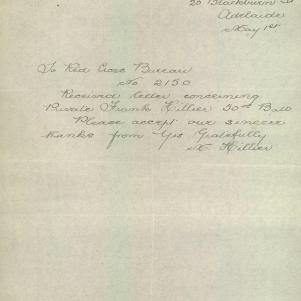 20 Blackburn St
Adelaide
May 1st
To Red Cross Bureau
No 2150
Received letter concerning
Private Frank Hillier 50th Batt
Please accept our sincere
thanks from Yrs Gratefully
N Hillier